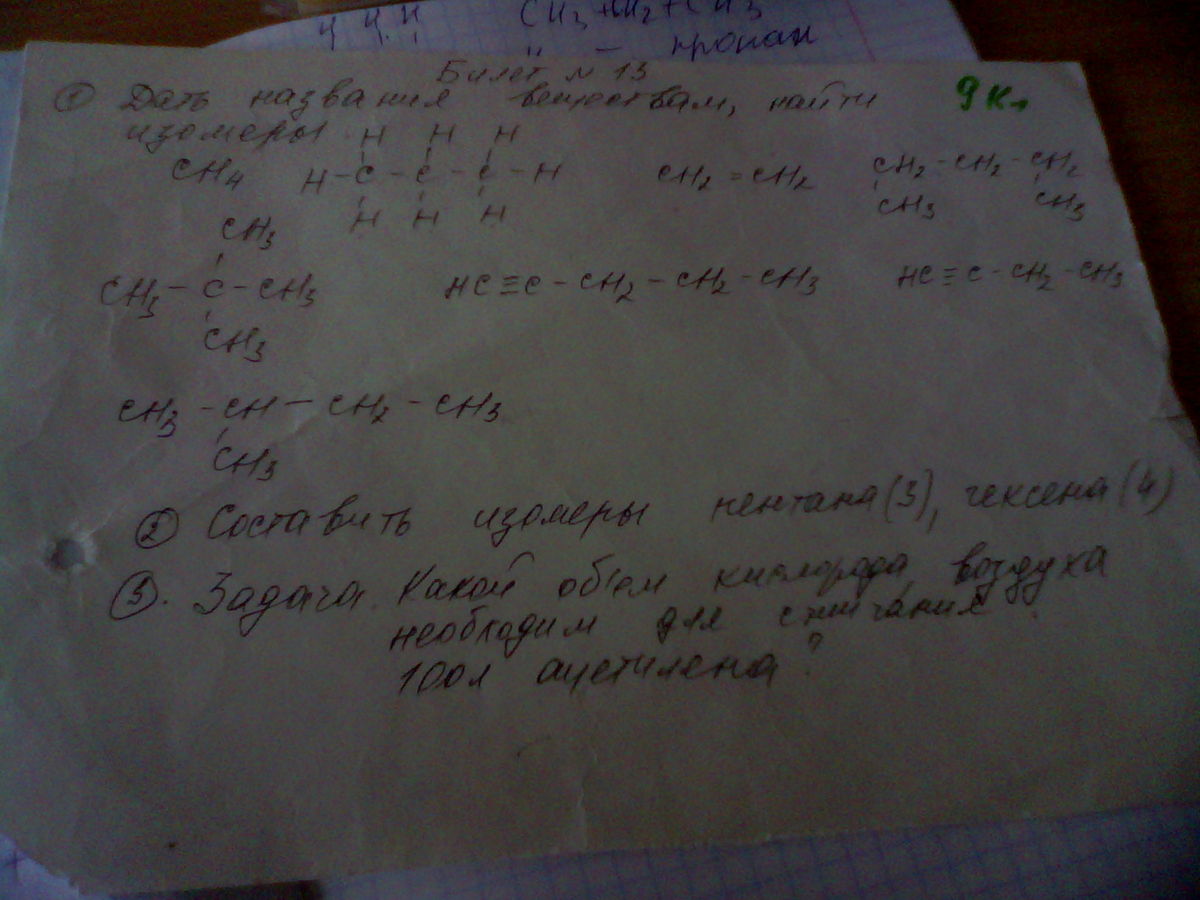 CH3 + CH2 + CH3
H H H
" — пропан
Билет № 13
① Дать названия веществам, найти 9 кл
изомеры
H H H
CH4 H - C - C - C - H CH2 = CH2 CH2 - CH2 - CH2
H H H CH3 CH3
CH3
CH3 - C - CH3 HC ≡ C - CH2 - CH2 - CH3 HC ≡ C - CH2 - CH3
CH3
CH3 - CH - CH2 - CH3
CH3
② Составить изомеры пентана (3), гексена (4)
③. Задача. Какой объем кислорода, воздуха
необходим для сжигания
100л ацетилена?